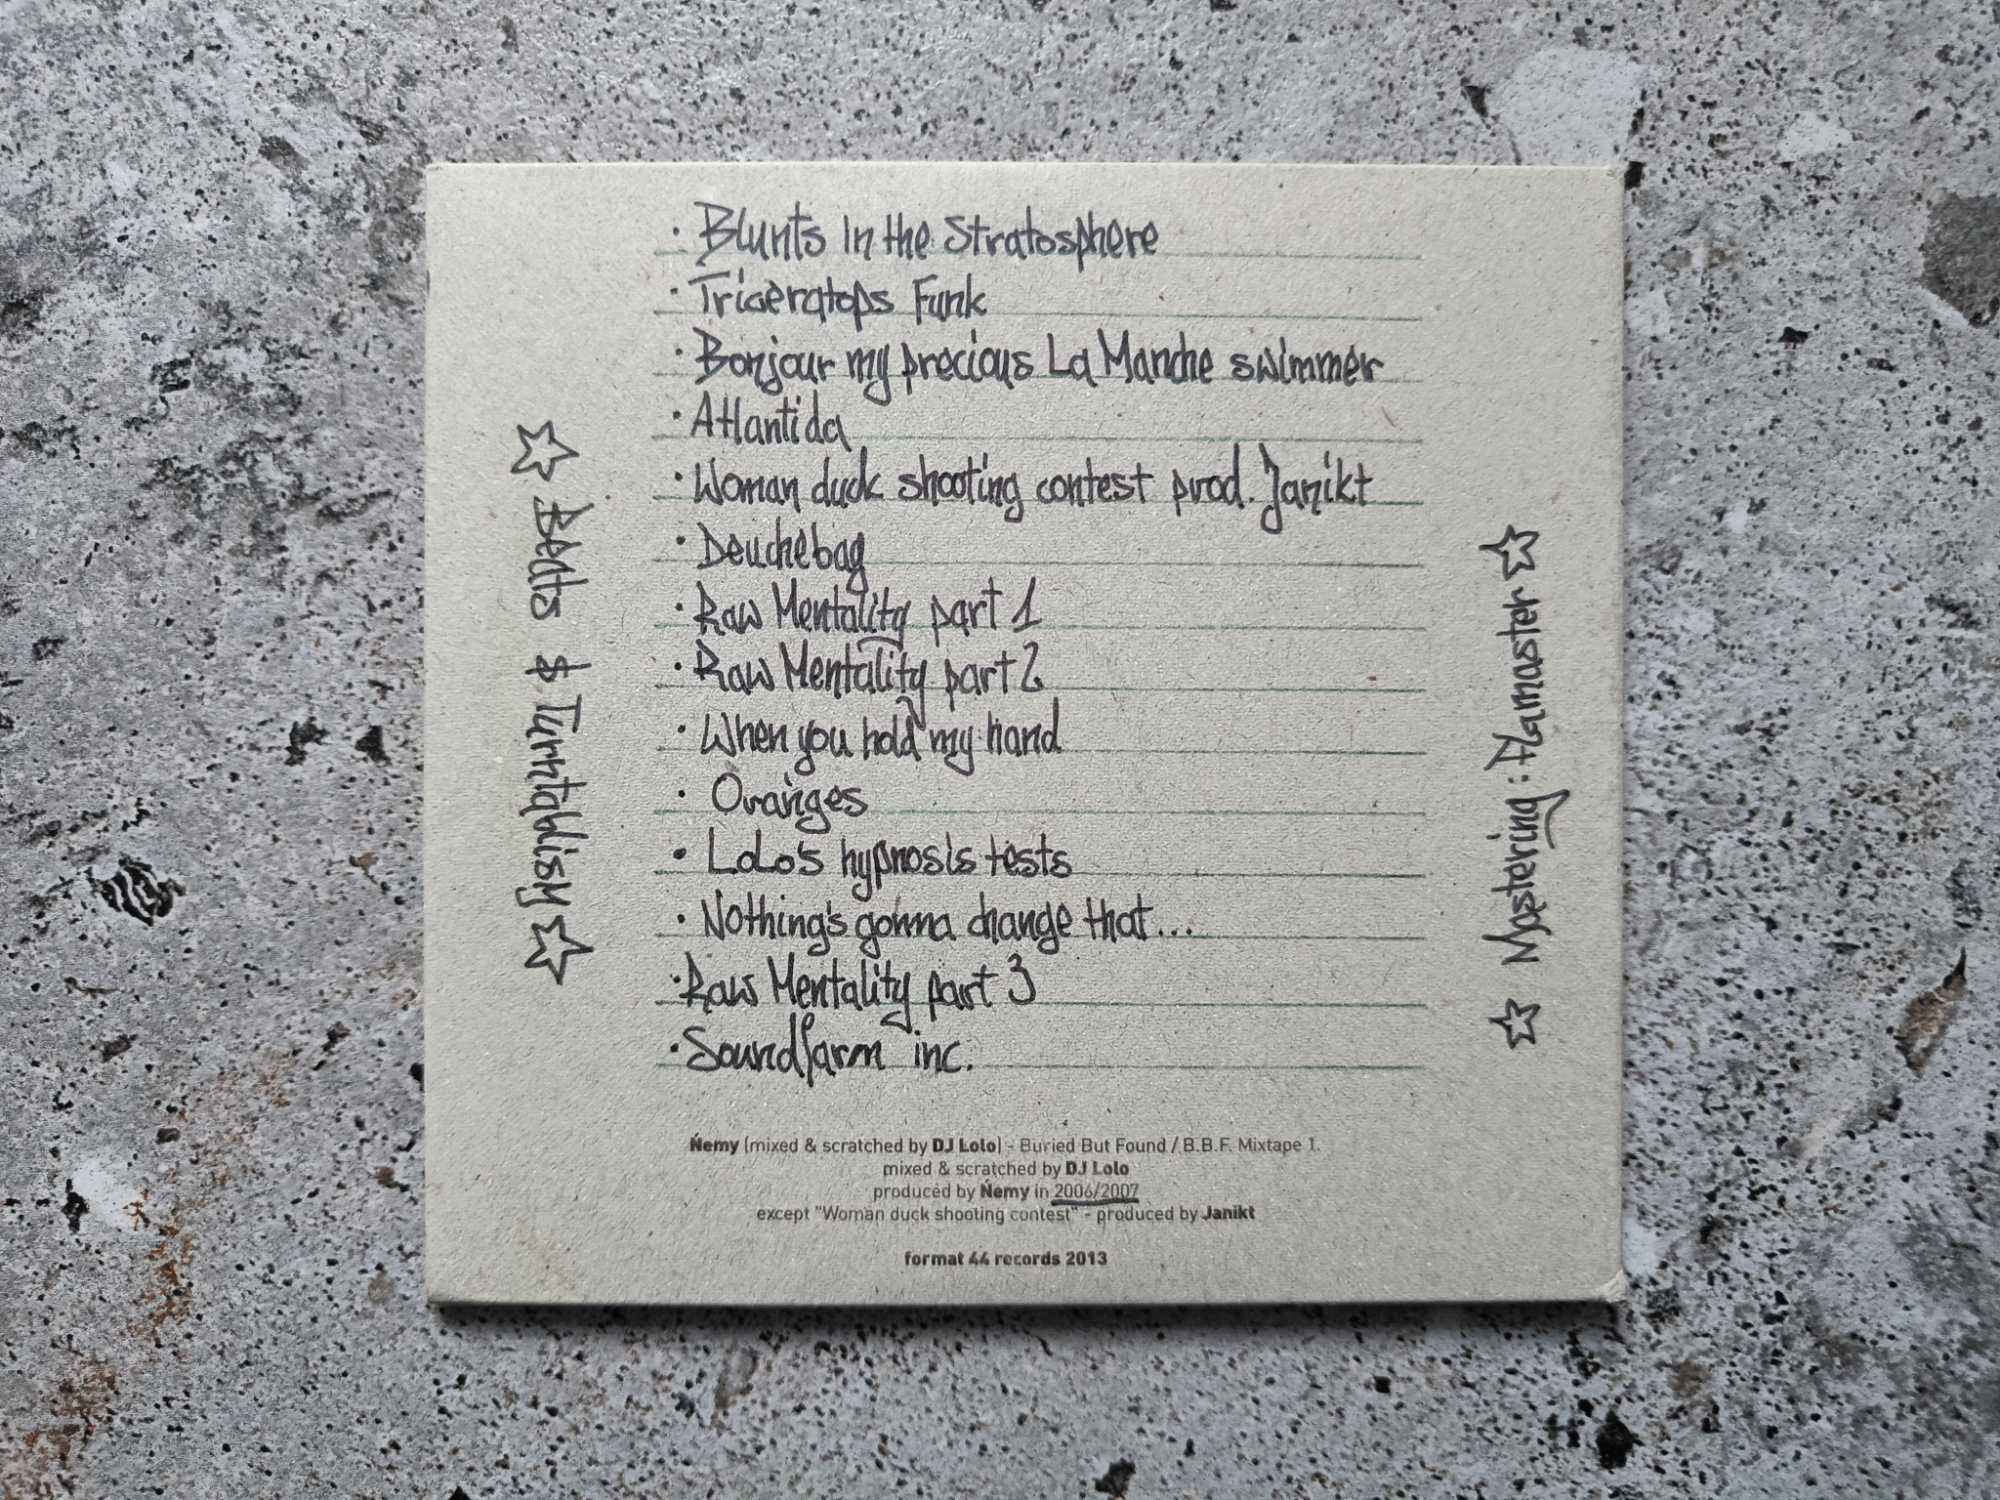 • Blunts in the Stratosphere
• Triceratops Funk
• Bonjour my precious La Manche swimmer
• Atlantida
• Woman duck shooting contest prod. Janikt
• Deuchebag
• Raw Mentality part 1
• Raw Mentality part 2
• When you hold my hand
• Oranges
• LoLo's hypnosis tests
• Nothing's gonna change that...
• Raw Mentality part 3
• Soundfarm inc.
☆ Beats $ Turntablism ☆
☆ Mastering: Plamaster ☆
Ńemy (mixed & scratched by DJ Lolo) - Buried But Found / B.B.F. Mixtape 1.
mixed & scratched by DJ Lolo
produced by Ńemy in 2006/2007
except "Woman duck shooting contest" - produced by Janikt
format 44 records 2013